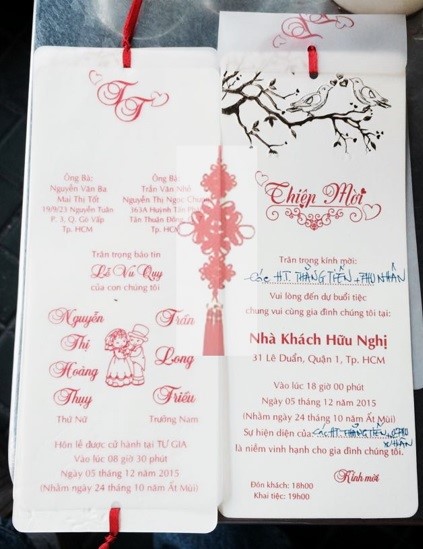 TT
Ông Bà:
Nguyễn Văn Ba
Mai Thị Tốt
19/9/23 Nguyễn Tuân
P. 3, Q. Gò Vấp
Ông Bà:
Trần Văn Nhỏ
Nguyễn Thị Ngọc
363A Huỳnh Tấn
Tân Thuận Đông
Trân trọng báo tin
Lễ Vu Quy
của con chúng tôi
Nguyễn
Thị
Hoàng
Thụy
Thứ Nữ
Trần
Long
Triều
Trưởng Nam
Hôn lễ được cử hành tại TƯ GIA
Vào lúc 08 giờ 30 phút
Ngày 05 tháng 12 năm 2015
(Nhằm ngày 24 tháng 10 năm Ất Mùi)
Thiệp Mời
Trân trọng kính mời:
Các HT THẮNG TIẾN + PHU NHÂN
Vui lòng đến dự buổi tiệc
chung vui cùng gia đình chúng tôi tại:
Nhà Khách Hữu Nghị
31 Lê Duẩn, Quận 1, Tp. HCM
Vào lúc 18 giờ 00 phút
Ngày 05 tháng 12 năm 2015
(Nhằm ngày 24 tháng 10 năm Ất Mùi)
Sự hiện diện của: Các HT THẮNG TIẾN + PHU NHÂN
là niềm vinh hạnh cho gia đình chúng tôi.
Kính mời
Đón khách: 18h00
Khai tiệc: 19h00